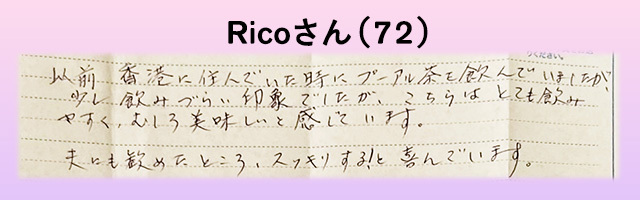 Ricoさん(72)
以前 香港に住んでいた時にプーアル茶を飲んでいましたが、
少し飲みづらい印象でしたが、こちらはとても飲み
やすく、むしろ美味しいと感じています。
夫にも勧めたところ、スッキリする!と喜んでいます。